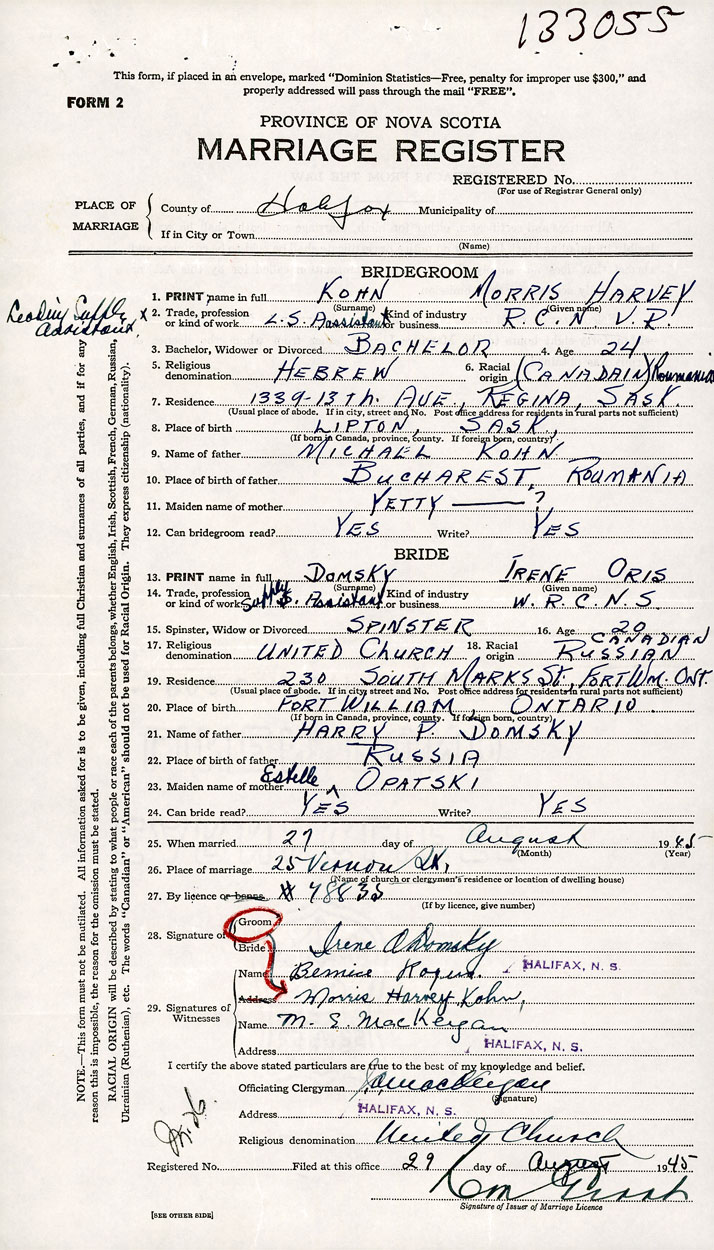 133055
This form, if placed in an envelope, marked “Dominion Statistics—Free, penalty for improper use $300,” and
properly addressed will pass through the mail “FREE”.
FORM 2
PROVINCE OF NOVA SCOTIA
MARRIAGE REGISTER
REGISTERED No.
(For use of Registrar General only)
PLACE OF MARRIAGE
County of Halifax Municipality of
If in City or Town
(Name)
BRIDEGROOM
1. PRINT name in full KOHN MORRIS HARVEY
(Surname) (Given name)
Leading Supply Assistant X
2. Trade, profession or kind of work L.S. Assistant Kind of industry or business R.C.N.V.R.
3. Bachelor, Widower or Divorced BACHELOR 4. Age 24
5. Religious denomination HEBREW 6. Racial origin (CANADAIN) Roumania
7. Residence 1339-13th. AVE., REGINA, SASK.
(Usual place of abode. If in city, street and No. Post office address for residents in rural parts not sufficient)
8. Place of birth LIPTON, SASK.,
(If born in Canada, province, county. If foreign born, country)
9. Name of father MICHAEL KOHN
10. Place of birth of father BUCHAREST, ROUMANIA
11. Maiden name of mother YETTY ——— ?
12. Can bridegroom read? YES Write? YES
BRIDE
13. PRINT name in full DOMSKY IRENE ORIS
(Surname) (Given name)
14. Trade, profession or kind of work Supply S. Assistant Kind of industry or business W.R.C.N.S
15. Spinster, Widow or Divorced SPINSTER 16. Age 20
17. Religious denomination UNITED CHURCH 18. Racial origin CANADIAN RUSSIAN
19. Residence 230 SOUTH MARKS ST., FORT WM. ONT.
(Usual place of abode. If in city, street and No. Post office address for residents in rural parts not sufficient)
20. Place of birth FORT WILLIAM, ONTARIO.
(If born in Canada, province, county. If foreign born, country)
21. Name of father HARRY P. DOMSKY
22. Place of birth of father RUSSIA
23. Maiden name of mother Estelle OPATSKI
24. Can bride read? YES Write? YES
25. When married 27 day of August 1945
(Month) (Year)
26. Place of marriage 25 Vernon St,
(Name of church or clergymen's residence or location of dwelling house)
27. By licence or banns # 48835
(If by licence, give number)
28. Signature of
Groom
Bride Irene O Domsky
29. Signatures of Witnesses
Name Bernice Rogers. HALIFAX, N. S.
Address Morris Harvey Kohn,
Name M. E. MacKeigan
Address HALIFAX, N. S.
I certify the above stated particulars are true to the best of my knowledge and belief.
Officiating Clergyman MacKeigan
(Signature)
Address HALIFAX, N. S.
Religious denomination United Church
Registered No. Filed at this office 29 day of August 1945
Signature of Issuer of Marriage Licence
[SEE OTHER SIDE]
NOTE.—This form must not be mutilated. All information asked for is to be given, including full Christian and surnames of all parties, and if for any
reason this is impossible, the reason for the omission must be stated.
RACIAL ORIGIN will be described by stating to what people or race each of the parents belongs, whether English, Irish, Scottish, French, German, Russian,
Ukrainian (Ruthenian), etc. The words “Canadian” or “American” should not be used for Racial Origin. They express citizenship (nationality).